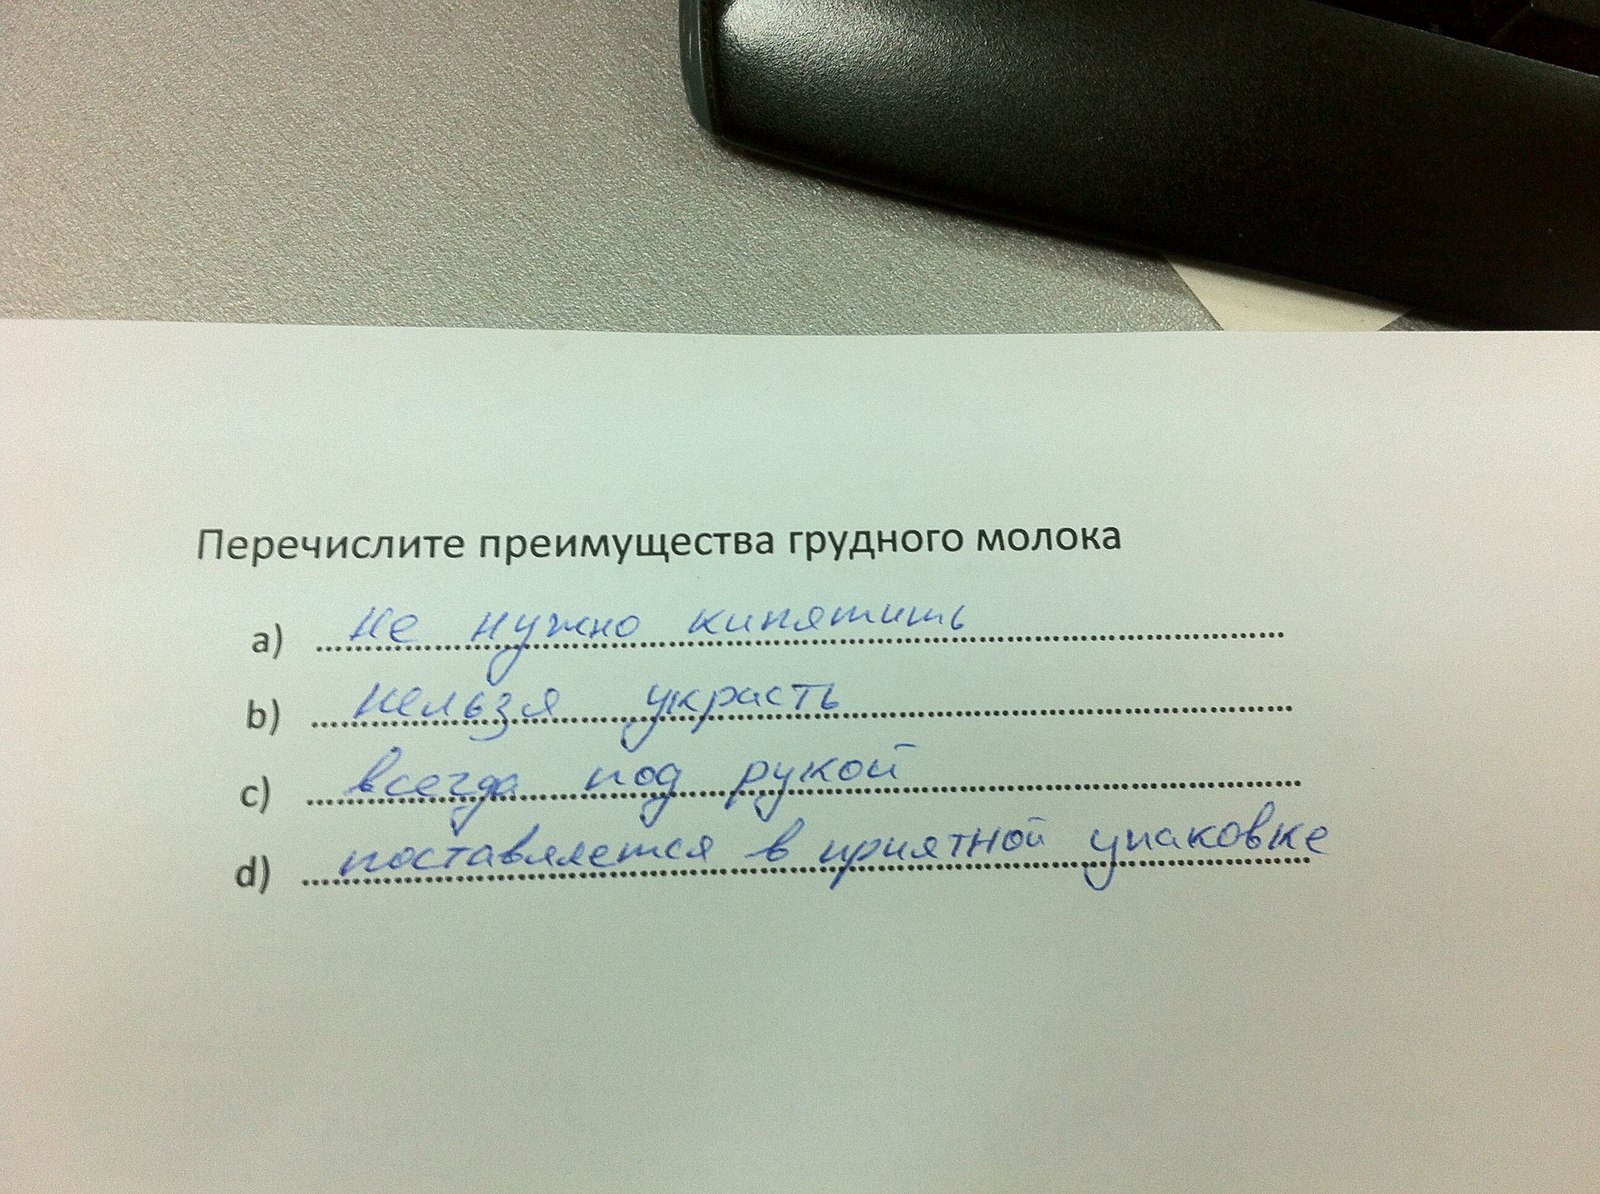 Перечислите преимущества грудного молока
a) не нужно кипятить
b) нельзя украсть
c) всегда под рукой
d) поставляется в приятной упаковке